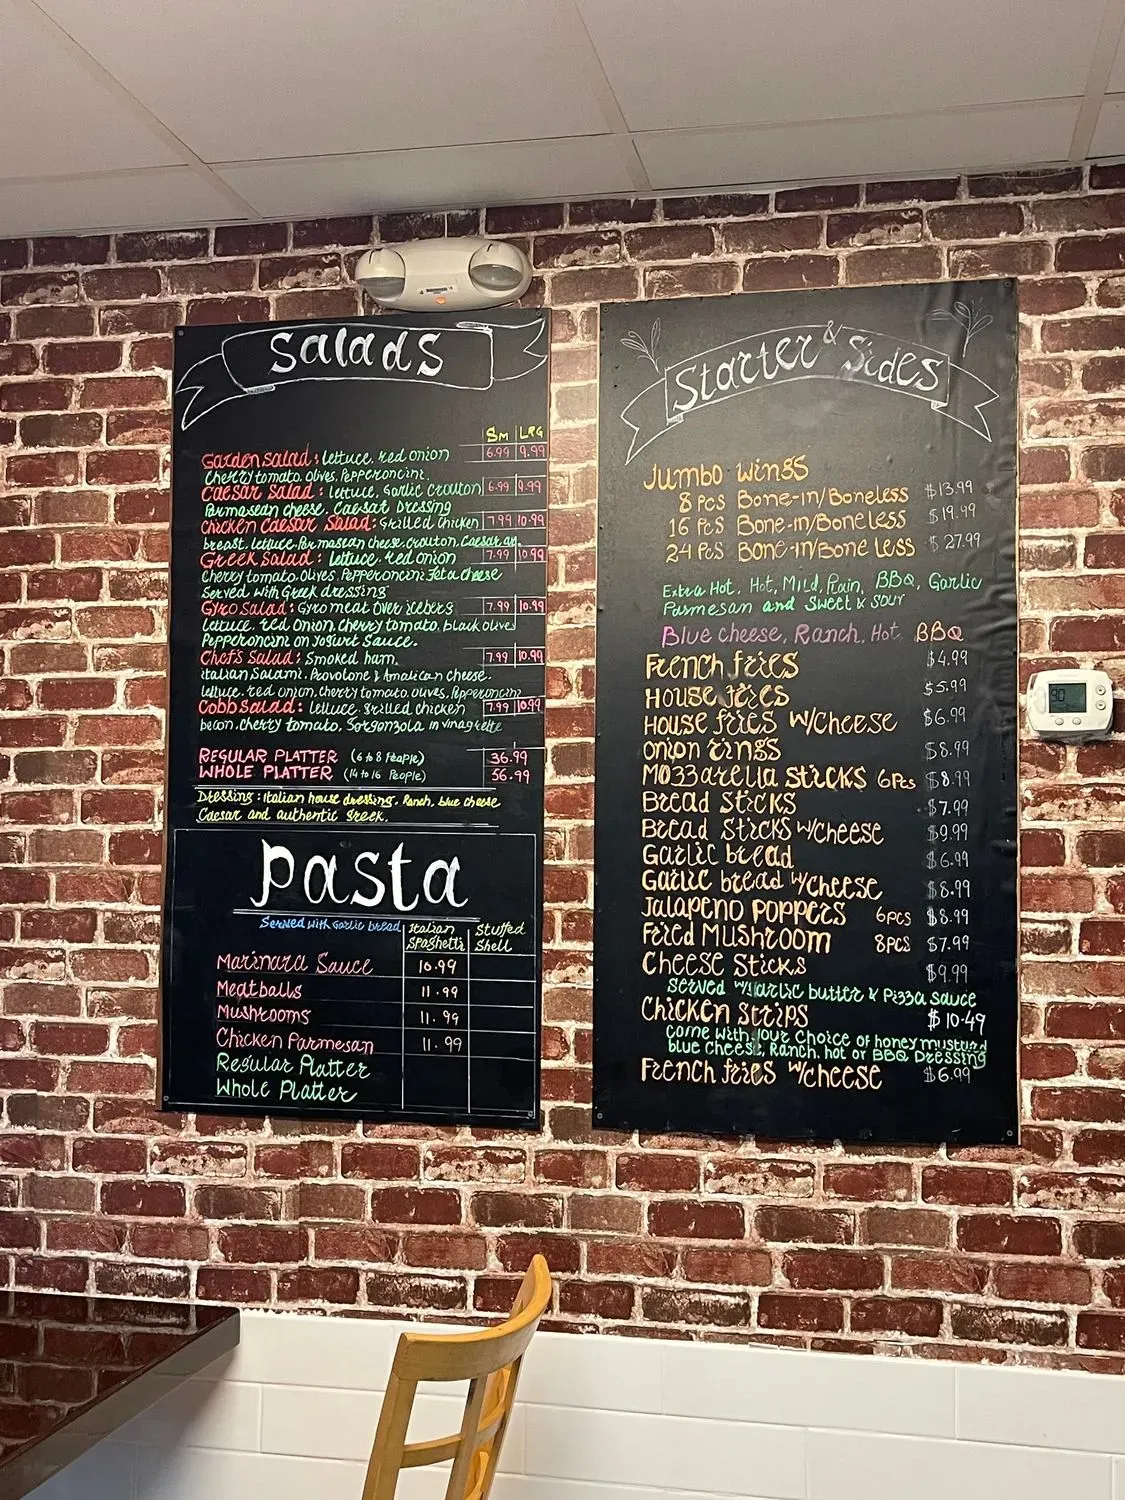 Salads
Sm LRG
Garden Salad: lettuce, red onion 6.99 9.99
Cherry tomato, olives, Pepperoncini.
Caesar Salad: lettuce, Garlic Crouton 6.99 9.99
Parmasean cheese, Caesat Dressing
Chicken Caesar Salad: Grilled Chicken 7.99 10.99
breast, lettuce, Parmasan cheese, crouton, Caesar
Greek Salad: lettuce, red onion 7.99 10.99
Cherry tomato, Olives, Pepperoncini Feta Cheese
Served with Greek dressing
Gyro Salad: Gyro meat Over iceberg 7.99 10.99
lattuce, red Onion, cherry tomato, black olives
Pepperoncini on Yogurt Sauce.
Chef's Salad: Smoked ham, 7.99 10.99
italian Salami, Provolone & American cheese,
lettuce, red onion, cherry tomato, olives, Pepperoncini
Cobb Salad: lettuce grilled chicken 7.99 10.99
bacon, cherry tomato, Gorgonzola in vinagrette
REGULAR PLATTER (6 to 8 People) 36.99
WHOLE PLATTER (14 to 16 People) 56.99
Dressing: italian house dressing, Ranch, blue cheese
Caesar and authentic Greek.
Pasta
Served with Garlic bread Italian Spaghetti Stuffed Shell
Marinara Sauce 10.99
Meatballs 11.99
Mushrooms 11.99
Chicken Parmesan 11.99
Regular Platter
Whole Platter
Starter & Sides
Jumbo wings
8 Pcs Bone-in/Boneless $13.99
16 Pcs Bone-in/Boneless $19.99
24 Pcs Bone-in/Boneless $27.99
Extra Hot, Hot, Mild, Plain, BBQ, Garlic
Parmesan and Sweet & Sour
Blue cheese, Ranch, Hot, BBQ
French fries $4.99
House fries $5.99
House fries w/cheese $6.99
Onion rings $8.99
Mozzarella Sticks 6Pcs $8.99
Bread Sticks $7.99
Bread Sticks w/cheese $9.99
Garlic bread $6.99
Garlic bread w/cheese $8.99
Jalapeno Poppers 6pcs $8.99
Fried Mushroom 8pcs $7.99
Cheese Sticks $9.99
Served w/garlic butter & Pizza sauce
Chicken Strips $10.49
come with your Choice of honey musturd
blue cheese, Ranch, hot or BBQ Dressing
French fries w/cheese $6.99